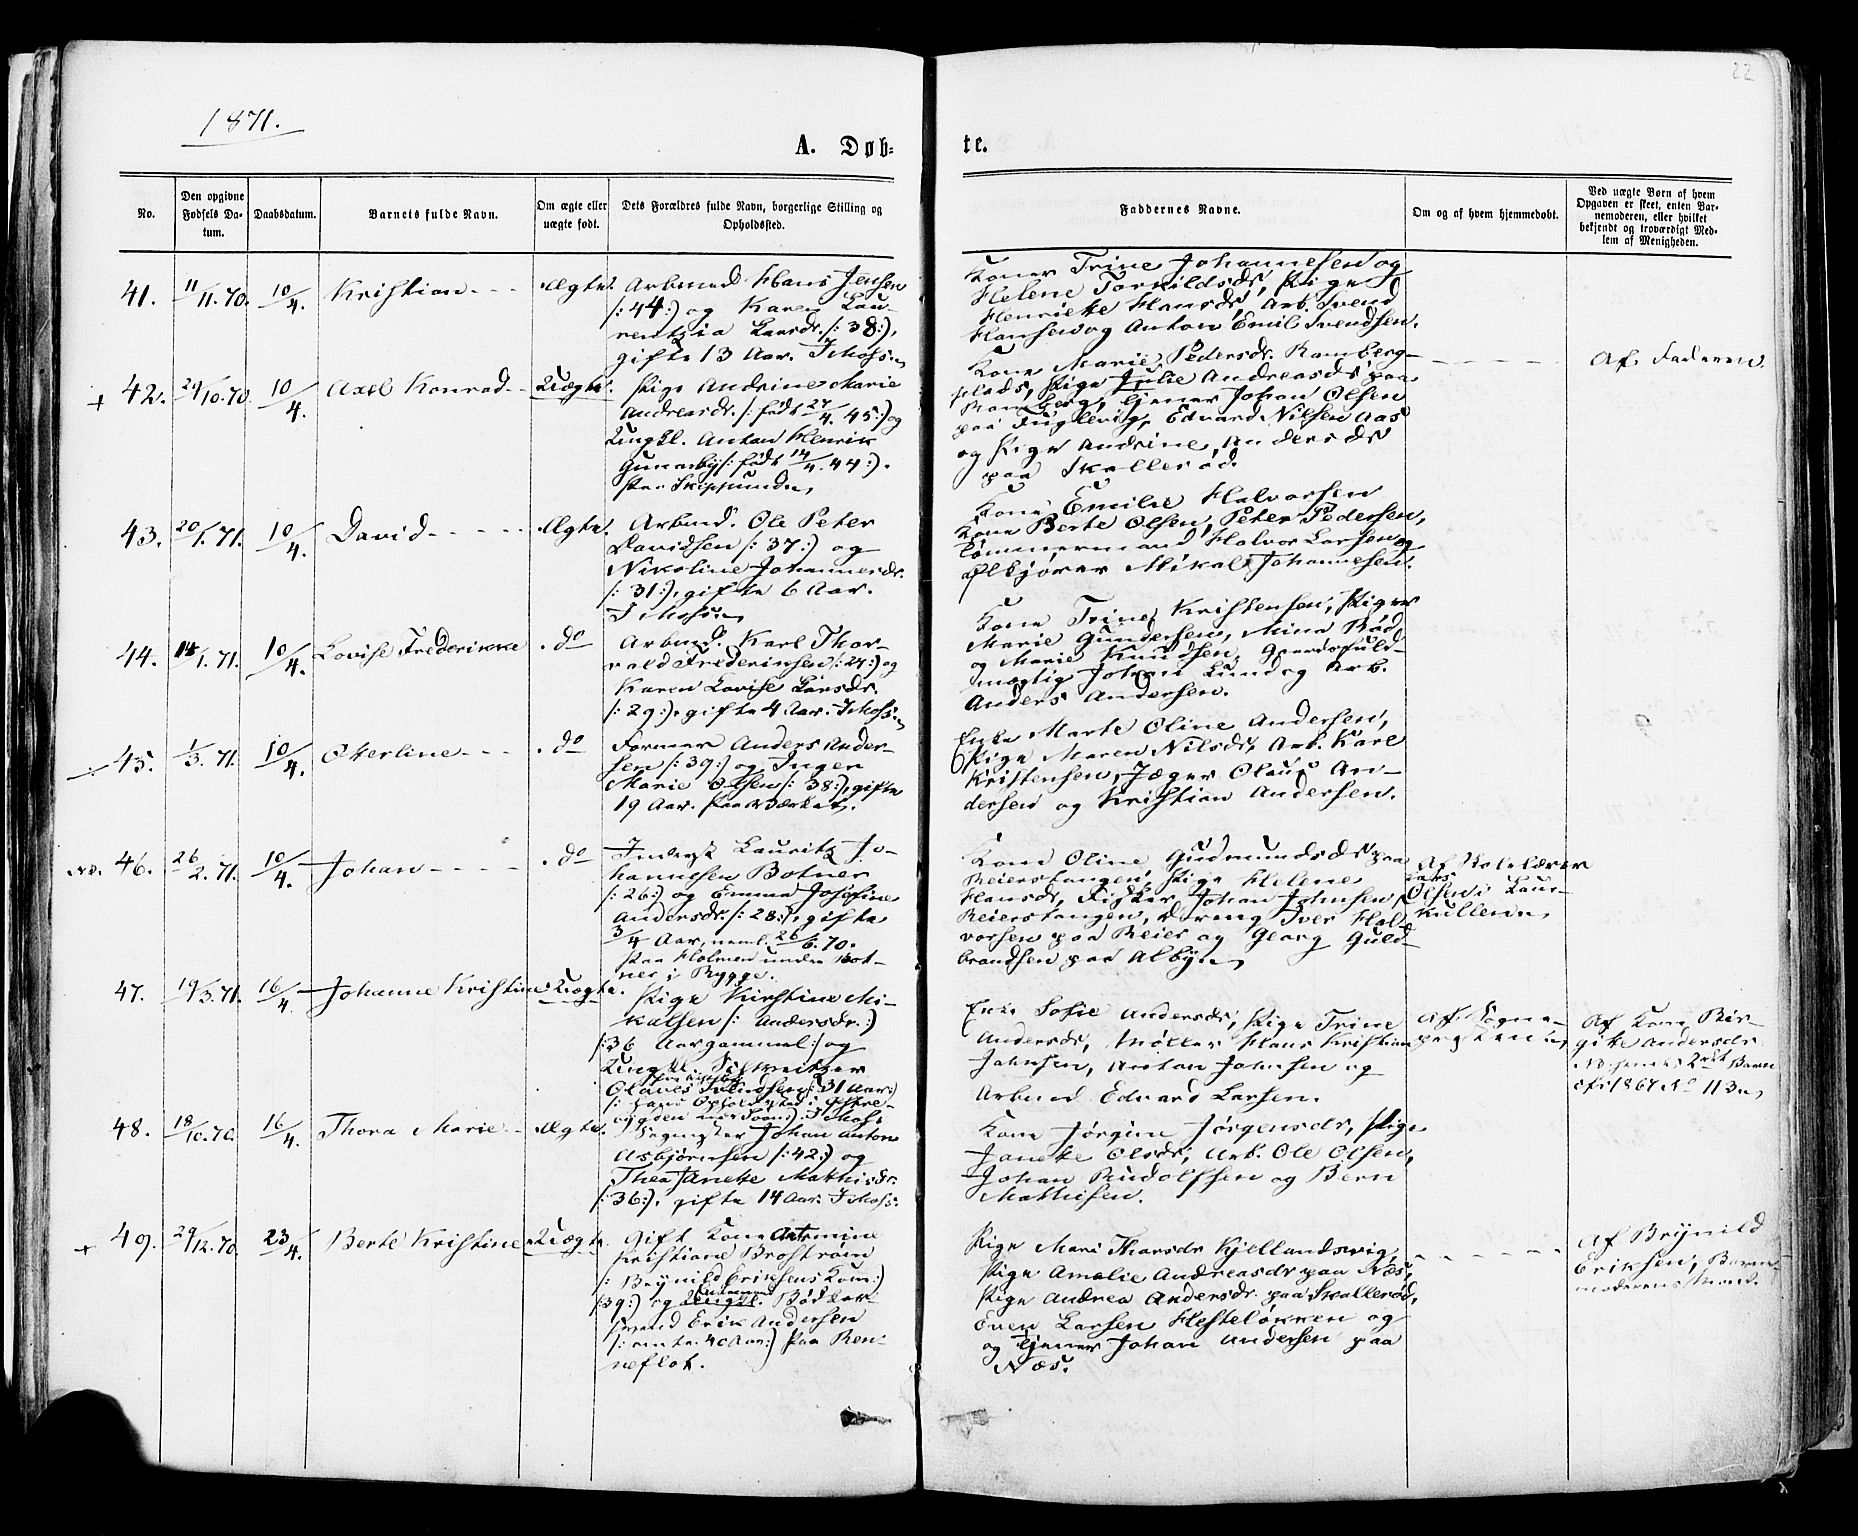 22
1871.
A. Døb-
te.
No.
Den opgivne Fødsels Datum.
Daabsdatum.
Barnets fulde Navn.
Om ægte eller uægte født.
Dets Forældres fulde Navn, borgerlige Stilling og Opholdssted.
Faddernes Navne.
Om og af hvem hjemmedøbt.
Ved uægte Børn af hvem Opgaven er skeet, enten Barnemoderen, eller hvilket bekjendt og troværdigt Medlem af Menigheden.
41. 11/11.70. 10/4. Kristian - - - Ægte.
Arbmd. Hans Jensen
/:44:) og Karen Lau-
rentzia Larsdr. /:38:),
gifte 13 Aar. I Moss.
Koner Trine Johannesen og
Helene Torkildsdr, Pige
Henriette Hansdr, Arb. Svend
Hansen og Anton Emil Svendsen.
+ 42. 29/10.70. 10/4. Axel Konrad - - Uægte.
Pige Andrine Marie
Andreasdr. /: født 27/4. 45:) og
Ungkl. Anton Henrik
Gunnerby /: født 14/4. 44:).
Paa Skipsund.
Kone Marie Pedersdr. Ramberg-
plads, Pige Julie Andreasdr paa
Ramberg, tjener Johan Olsen
paa Fuglevig, Edvard Nilsen Aas
og Pige Andrine Andersdr
paa Skallerød.
Af Faderen
43. 20/1.71. 10/4. David - - - - Ægte.
Arbmd. Ole Peter
Davidsen /:37:) og
Nikoline Johannesdr.
/:31:), gifte 6 Aar.
I Moss.
Kone Emilie Halvorsen
Kone Berte Olsen, Peter Pedersen,
Tømmermand Halvor Larsen og
Ølkjører Mikal Johannesen.
44. 14/1.71. 10/4. Lovise Frederikke . do
Arbmd. Karl Thor-
vald Frederiksen /:27:) og
Karen Lovise Larsdr.
/:29:), gifte 4 Aar. I Moss.
Kone Trine Kristensen, Piger
Marie Gundersen, Mina Rød
og Marie Knudsen, Gaardsfuld-
mægtig Johan Lund og Arb.
Anders Andersen.
45. 1/3.71. 10/4. Oterline - - - . do
Former Anders Ander-
sen /:39:) og Inger
Marie Olsen /:38:), gifte
19 Aar. Paa Værket.
Enke Marte Oline Andersen,
Pige Maren Nilsdr, Arb. Karl
Kristensen, Jæger Olaus An-
dersen og Kristian Andersen.
NB. 46. 26/2.71. 10/4. Johan - - - - . do
Inderst Lauritz Jo-
hannesen Botner
/:26:) og Emma Josefine
Andersdr. /:28:), gifte
3/4 Aar, neml. 26/6.70.
Paa Holmen under Bot-
ner i Rygge.
Kone Oline Gudmundsdr paa
Reierstangen, Pige Helene
Hansdr, Fisker Johan Johnsen,
Reierstangen, dreng Iver Hal-
vorsen paa Reier og Georg Guld-
brandsen paa Alby.
Af Skolelærer
Lars
Olsen i Laur-
kullen.
47. 19/3.71. 16/4. Johanne Kristine Uægte.
Pige Kirstine Mi-
kalsen /: Andersdr.:)
/:36 Aar gammel:) og
Ungkl.
Olaves Svendsen /:31 Aar:)
I Moss.
Enke Sofie Andersdr, Pige Trine
Andersdr, Møller Hans Kristian
Johnsen, Anton Johnsen og
Arbmd Edvard Larsen.
Af Sogne-
presten.
Af Kone Bir-
gite Andersdr.
Moderens 2det Barn
cfr 1867 No 113.
48. 18/10.70. 16/4. Thora Marie - Ægte.
Sagmster Johan Anton
Asbjørnsen /:42:) og
Thea Janette Mathisdr.
/:36:), gifte 14 Aar. I Moss.
Kone Jørgine Jørgensdr, Pige
Janette Olsdr, Arb. Ole Olsen,
Johan Rudolfsen og Bern
Mathisen.
+ 49. 29/12.70. 23/4. Berte Kristine Uægte.
Gift Kone Antomine
Kristiane Brostrøm
/: Brynild Eriksens Kone:)
/:39:) og Ungkl. Bødker-
svend Erik Andersen
/: omtr. 40 Aar:) Paa Ren-
neflot.
Pige Mari Thorsdr Kjellandsvig,
Pige Amalie Andreasdr paa Næs,
Pige Andrea Andersdr. paa Skallerød,
Even Larsen Hesteløkken og
og tjener Johan Andersen paa
Næs.
Af Brynild
Eriksen, Barne-
moderens Mand.